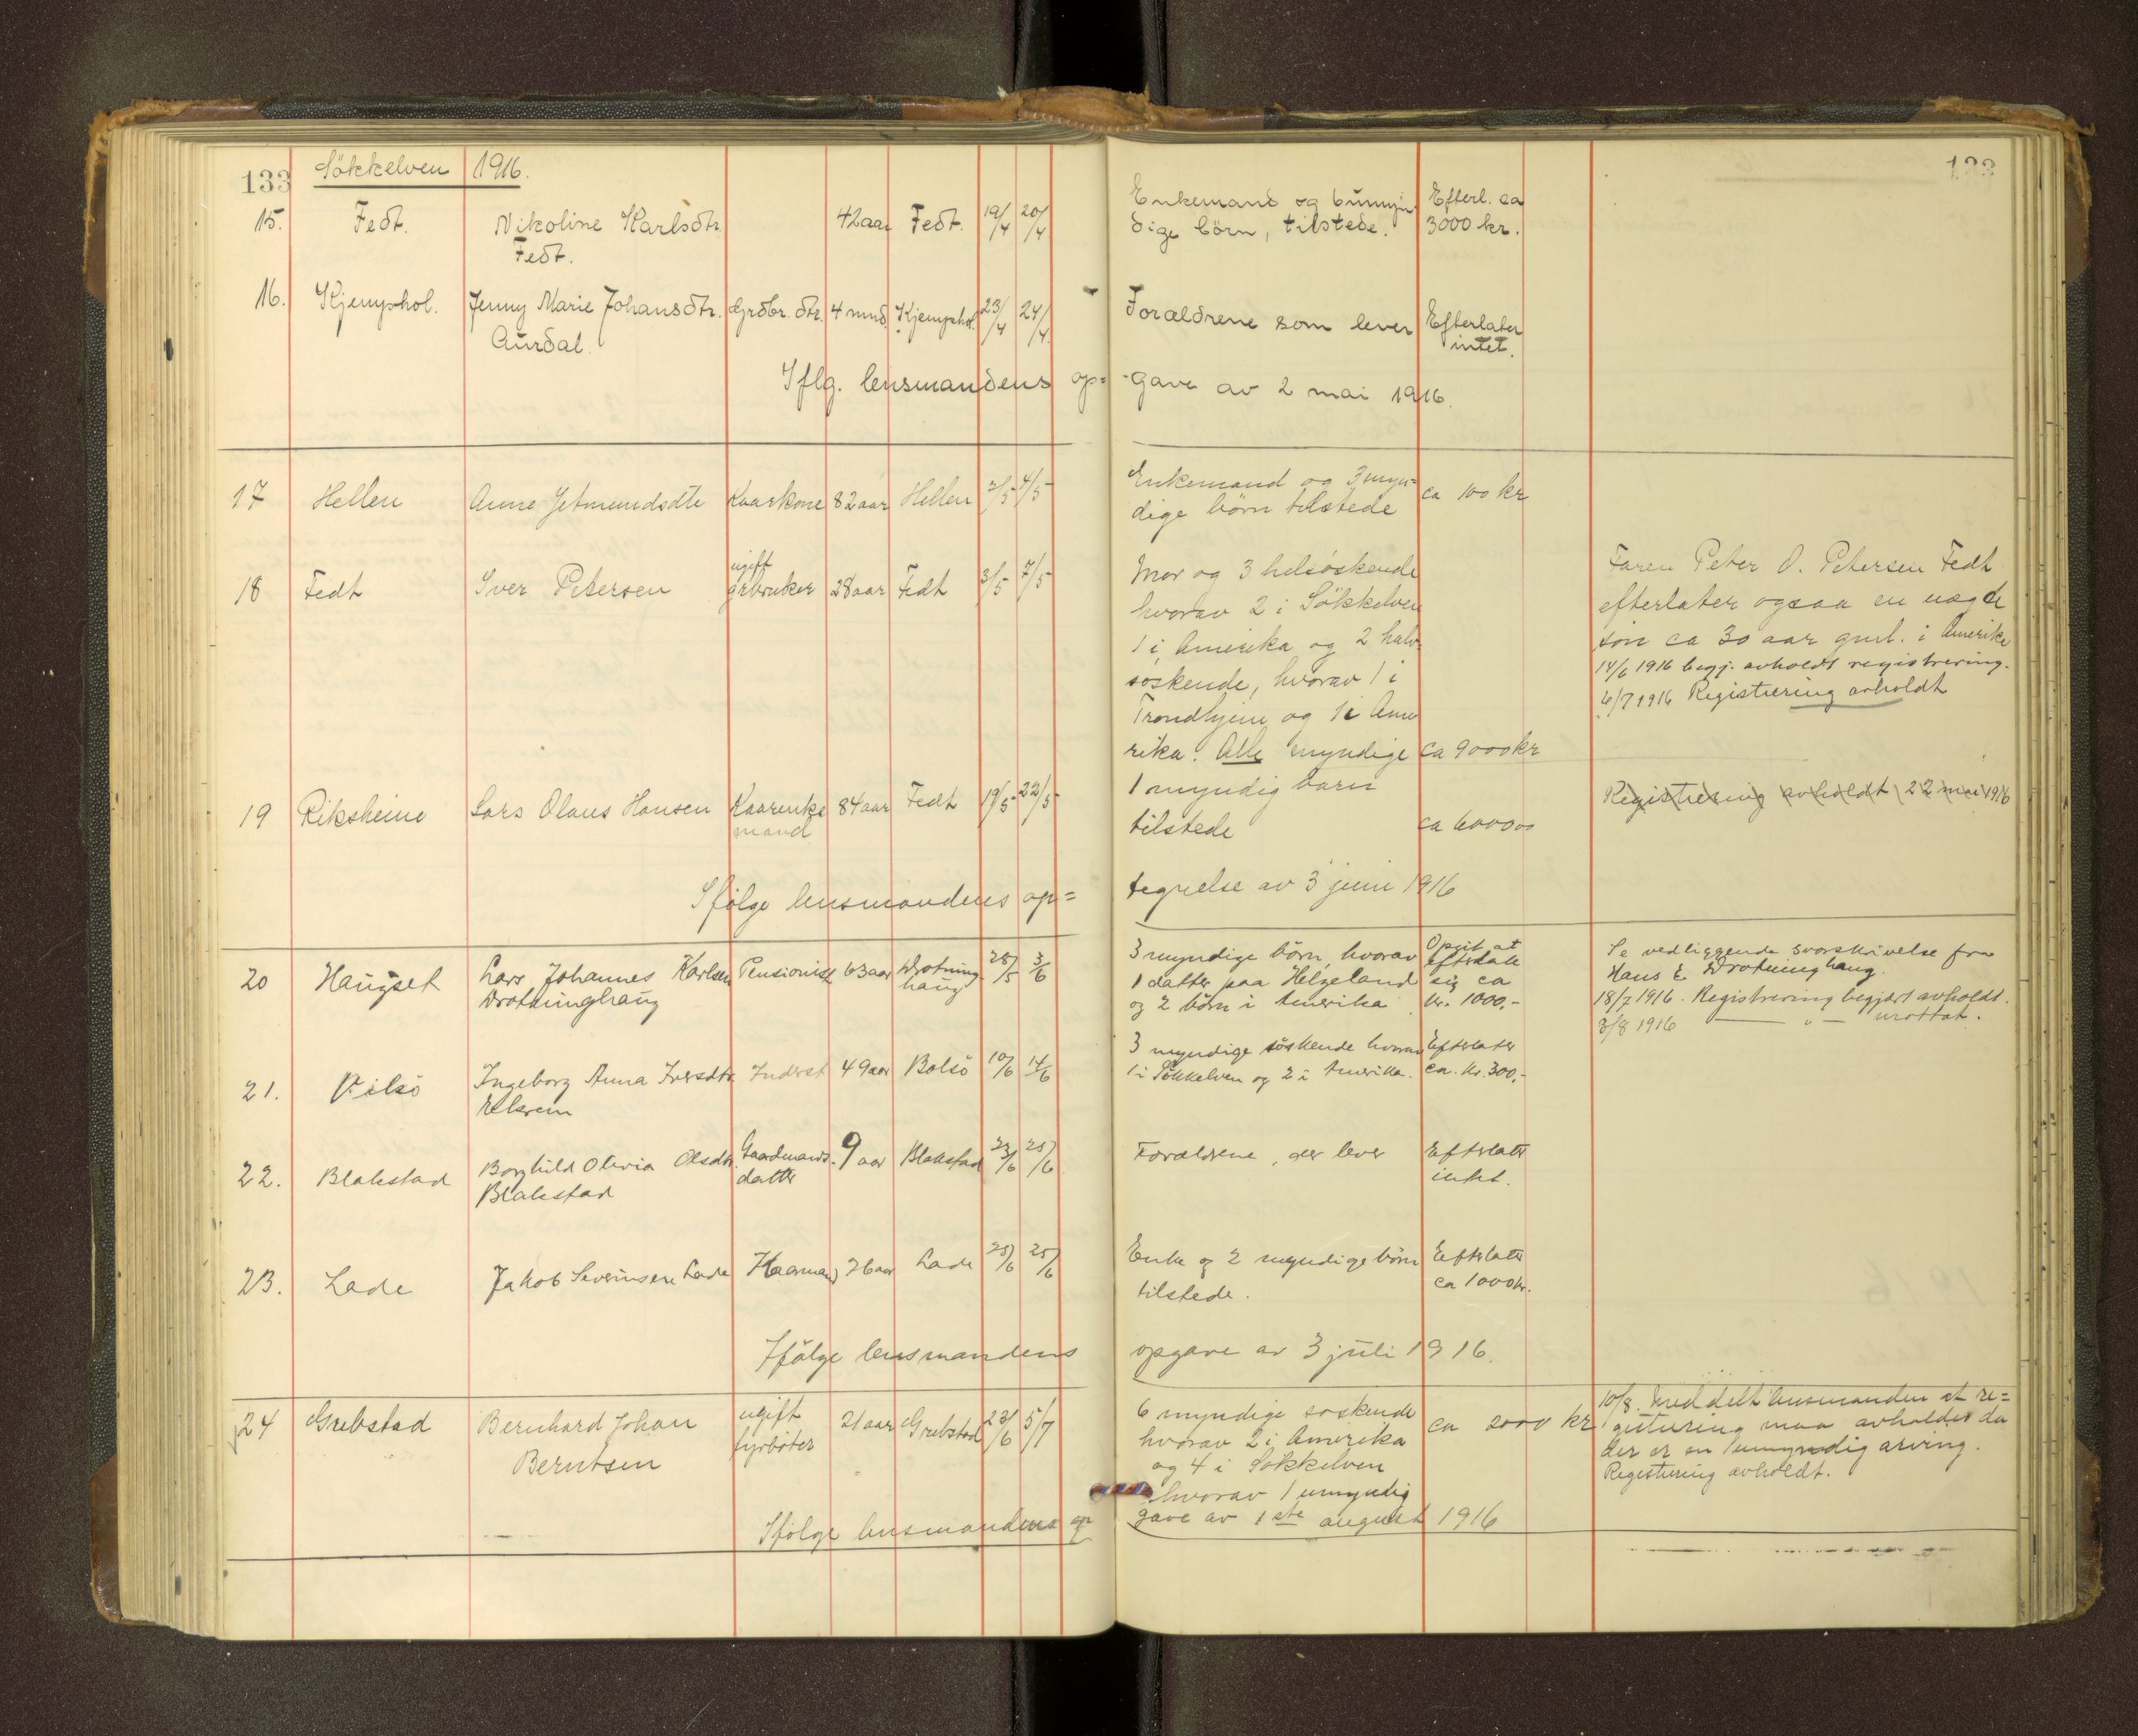 133 Sökkelven 1916. 133
15. Fedt. Nikoline Karlsdtr. 42 aar Fedt. 19/4 20/4 Enkemand og 6 umyn- Efterl. ca
Fedt. dige börn, tilstede. 3000 kr.
16. Kjemphol. Jenny Marie Johansdtr. Grdbr. dtr. 4 mnd. Kjemphol. 23/4 24/4 Forældrene som lever Efterlater
Aurdal. intet.
Iflg. lensmandens op- -gave av 2 mai 1916.
17 Hellen Anne Jetmundsdtr Kaarkone 82 aar Hellen 2/5 4/5 Enkemand og 3 myn= ca 100 kr
dige börn tilstede
18 Fedt Iver Petersen ugift 28 aar Fedt 3/5 7/5 Mor og 3 helsöskende Faren Peter O. Petersen Fedt
grbruker hvorav 2 i Sökkelven efterlater ogsaa en uægte
1 i Amerika og 2 halv- sön ca 30 aar gml. i Amerika
söskende, hvorav 1 i 14/6 1916 begj. avholdt registrering.
Trondhjem og 1 i Ame 6/7 1916 Registrering avholdt
rika. Alle myndige ca 9000 kr
19 Riksheim Lars Olaus Hansen Kaarenke 84 aar Fedt 19/5 22/5 1 myndig barn Registrering avholdt 22 mai 1916
mand tilstede ca 6000 00
Ifölge lensmandens op= tegnelse av 3 juni 1916
20 Haugset Lars Johannes Karlsen Pensionist 63 aar Drotning- 28/5 3/6 3 myndige börn, hvorav Opgit at Se vedliggende svarskrivelse fra
Drotninghaug haug 1 datter paa Helgeland efterlate Hans E Drotninghaug.
og 2 börn i Amerika sig ca 18/7 1916. Registrering begjært avholdt.
kr. 1000,- 3/8 1916 — " — mottat.
21. Vilsö Ingeborg Anna Iversdtr Inderst 49 aar Bolsö 10/6 14/6 3 myndige söskende hvorav Efterlater
Ekrem 1 i Sökkelven og 2 i Amerika. ca. kr. 300,-
22. Blakstad Borghild Olivia Olsdtr. Gaardmands- 9 aar Blakstad 23/6 25/6 Forældrene, der lever Efterlater
Blakstad datter intet.
23. Lade Jakob Severinsen Lade Kaarmand 76 aar Lade 25/6 25/6 Enke og 2 myndige börn Efterlater
tilstede. ca 1000 kr.
Ifölge lensmandens opgave av 3 juli 1916.
24 Grebstad Bernhard Johan ugift 21 aar Grebstad 23/6 5/7 6 myndige söskende ca 2000 kr 10/8. Meddelt lensmanden at re=
Berntsen fyrböter hvorav 2 i Amerika gistrering maa avholdes da
og 4 i Sökkelven der er en umyndig arving.
hvorav 1 umyndig Registrering avholdt.
Ifölge lensmandens op gave av 1ste august 1916